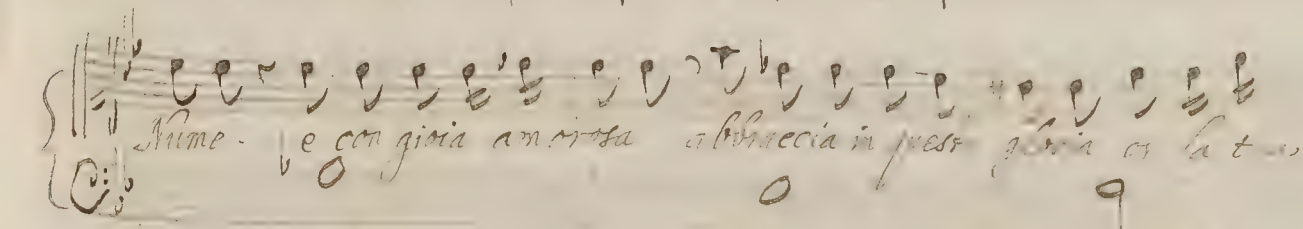 Nume. e con gioia amorosa abbraccia in gioia or la